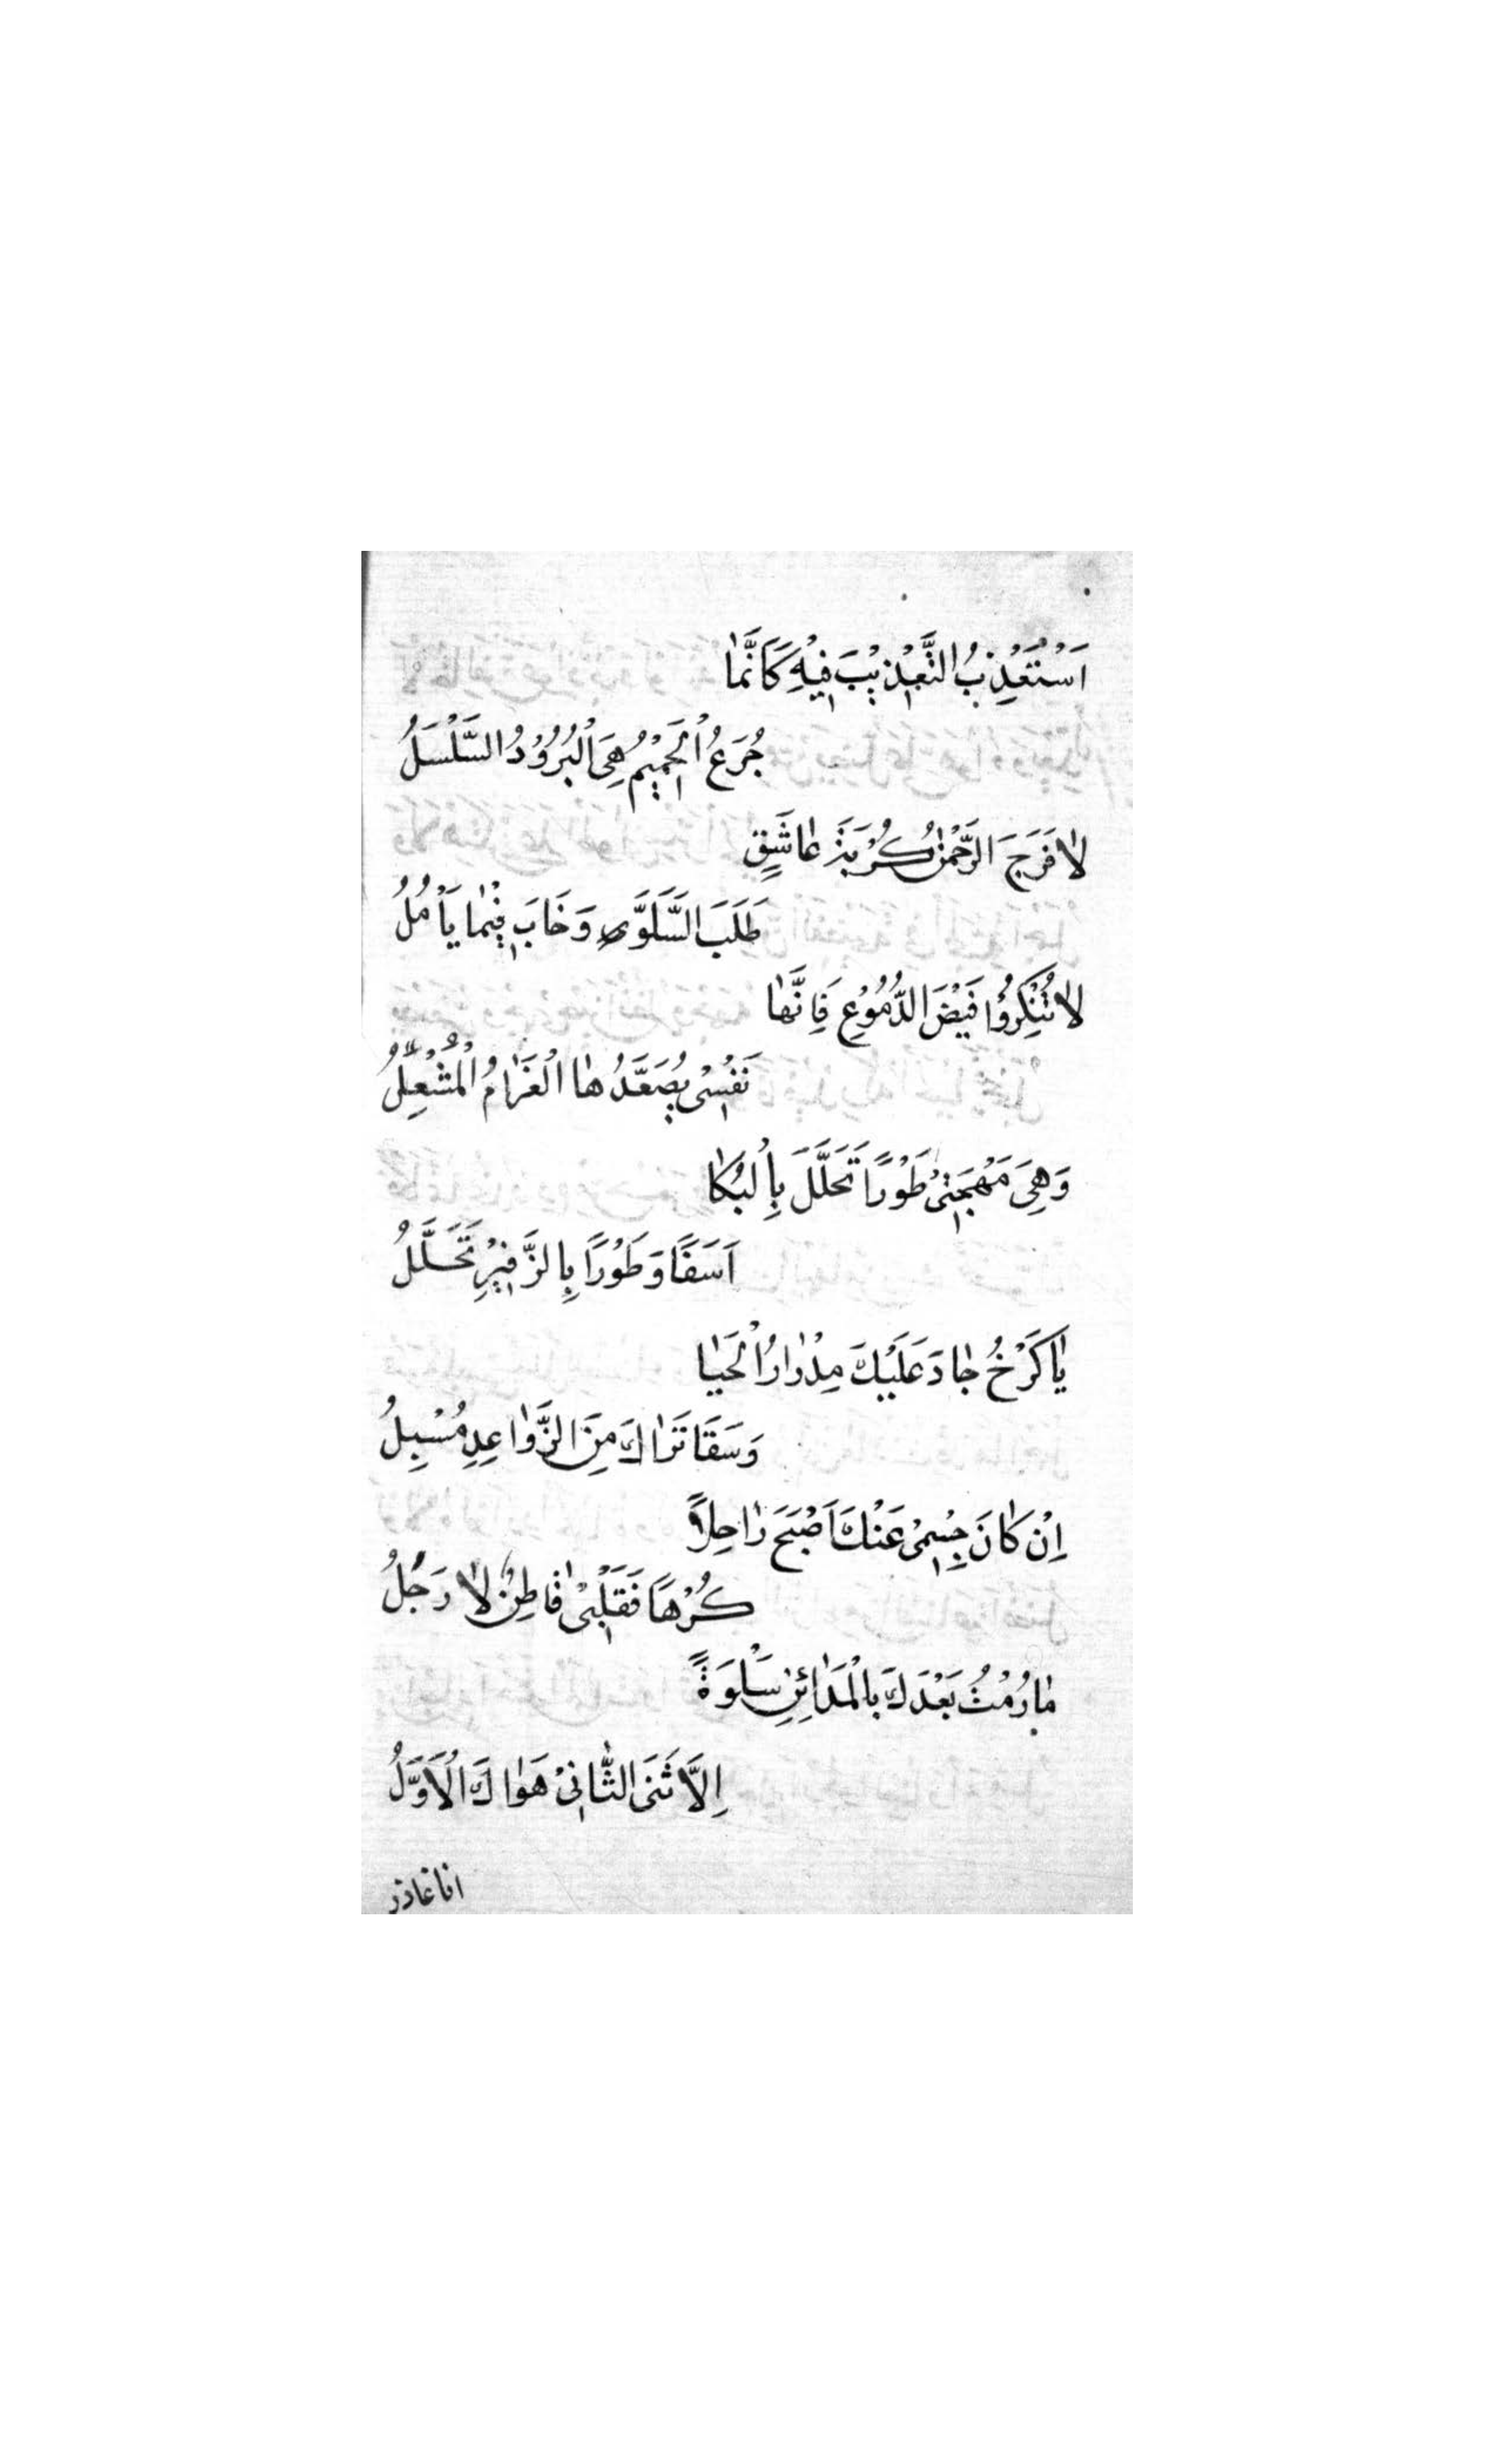 اَسْتَعْذِبُ التَّعْذِيْبَ فِيْهِ كَاَنَّمٰا
جُرَعُ الْحَمِيْمِ هِيَ الْبُرُوْدُ السَّلْسَلُ
لاٰ فَرَّجَ الرَّحْمٰنُ كُرْبَةَ عٰاشِقٍ
طَلَبَ السَّلَوَّ وَخَابَ فِيْمٰا يَأْمُلُ
لاٰ تُنْكِرُوْا فَيْضَ الدُّمُوْعِ فَاِنَّهٰا
نَفْسِىْ يُصَعِّدُهٰا الْغَرٰامُ الْمُشْعِلُ
وَهِيَ مَهْجَتِىْ طَوْرًا تَحَلَّلَ بِالْبُكٰا
اَسَفًا وَطَوْرًا بِالزَّفِيْرِ تَحَلَّلُ
يٰا كَرْخُ جٰادَ عَلَيْكَ مِدْرٰارُ الْحَيٰا
وَسَقَا ثَرٰاكَ مِنَ الرَّوٰاعِدِ مُسْبِلُ
اِنْ كٰانَ جِسْمِىْ عَنْكَ اَصْبَحَ رٰاحِلاً
كُرْهًا فَقَلْبِىْ قٰاطِنٌ لاٰ رَجُلُ
مٰا رُمْتُ بَعْدَكَ بِالْمَدٰائِنِ سَلْوَةً
اِلاَّ ثَنَى الثَّانِىْ هَوٰاكَ الْاَوَّلُ
انا غاذر